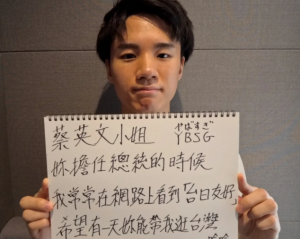 蔡英文小姐
やばすぎ
YBSG
妳擔任總統的時候
我常常在網路上看到「台日友好」
希望有一天妳能帶我逛台灣